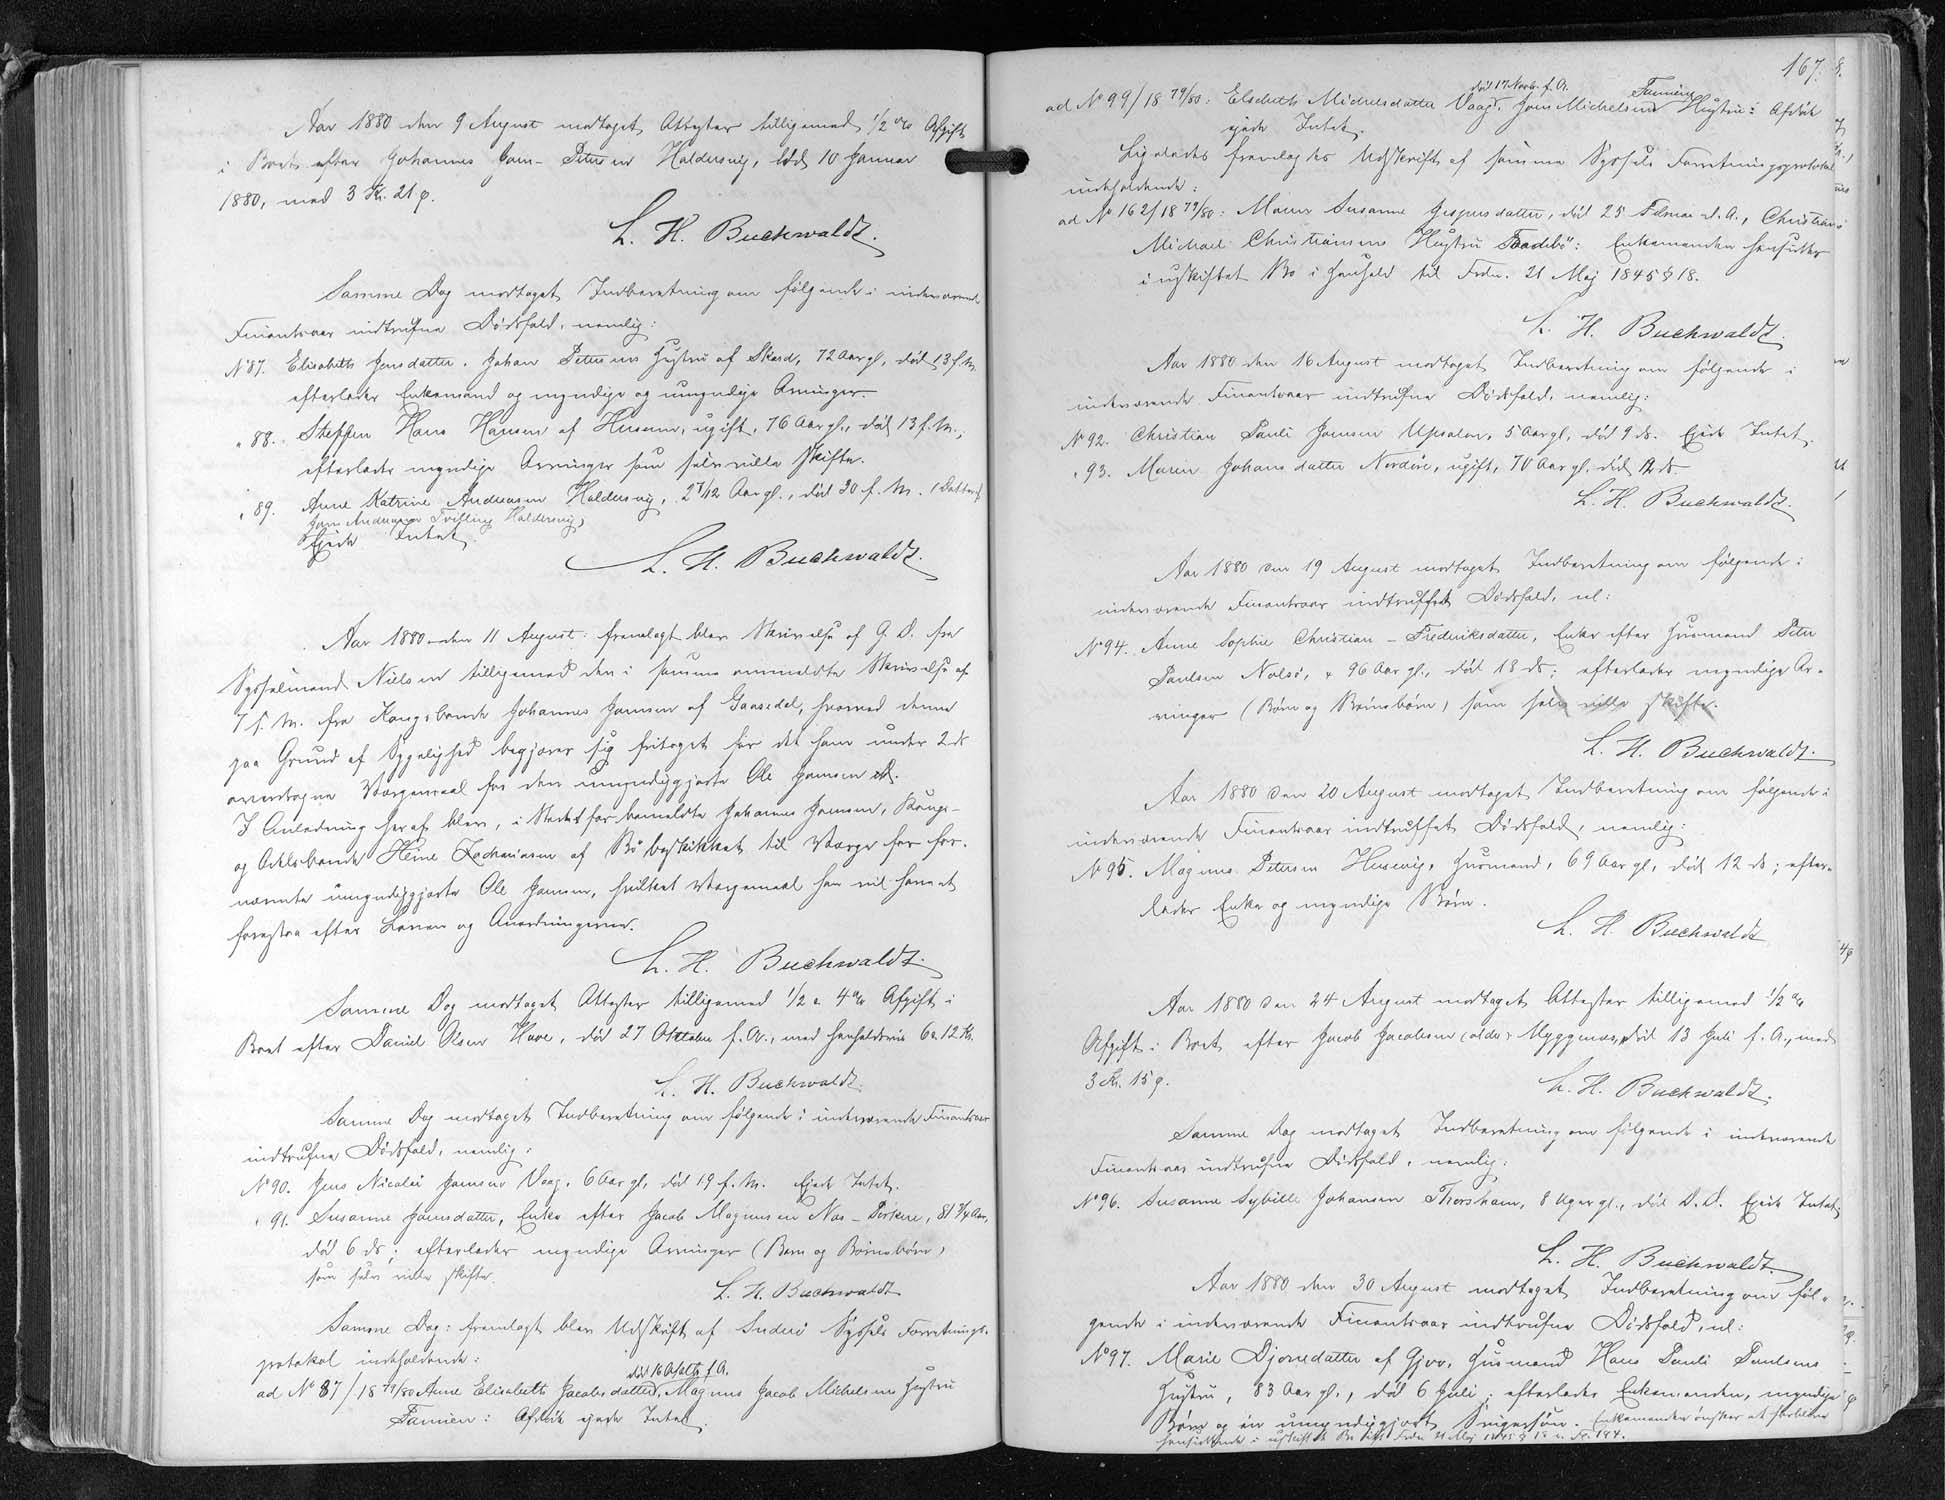 Aar 1880 den 9 August modtaget Attester tilligemed 1/2 % Afgift
i Boet efter Johannes Joen-Petersen Haldersvig, død 10 Januar
1880, med 3 Kr. 21 ø.
L. H. Buchwaldt.
Samme Dag modtaget Indberetning om følgende i indeværende
Finantsaar indtrufne Dødsfald, nemlig:
No 87. Elisabeth Jensdatter, Johan Petersens Hustru af Skard, 72 Aar gl., død 13 f. M.
efterlader Enkemand og myndige og umyndige Arvinger.
" 88. Steffen Hans Hansen af Husum, ugift, 76 Aar gl., død 13 f. M.,
efterlader myndige Arvinger som selv ville skifte.
" 89. Anne Katrine Andreasen Haldersvig, 2 7/12 Aar gl., død 30 f. M. (Datter af
Joen Andreasen Haldersvig)
Ejede Intet.
L. H. Buchwaldt.
Aar 1880 den 11 August: fremlagt blev Skrivelse af G. D. fra
Sysselmand Nielsen tilligemed den i samme ommeldte Skrivelse af
7 f. M. fra Kongsbonde Johannes Joensen af Gaasedal, hvorved denne
paa Grund af Sygelighed begjærer sig fritaget for det ham under 2 ds
overdragne Værgemaal for den umyndiggjorte Ole Joensen
I Anledning heraf blev, i Stedet for bemeldte Johannes Joensen, Kongs-
og Odelsbonde Heine Zachariasen af Bø beskikket til Værge for for-
nævnte umyndiggjorte Ole Joensen, hvilket Værgemaal han vil have at
forestaa efter Loven og Anordningerne.
L. H. Buchwaldt.
Samme Dag modtaget Attester tilligemed 1/2 & 4 % Afgift i
Boet efter Daniel Olsen Hove, død 27 Oktober f. A., med henholdsvis 6 & 12 Kr.
L. H. Buchwaldt.
Samme Dag modtaget Indberetning om følgende i indeværende Finantsaar
indtrufne Dødsfald, nemlig:
No 90. Jens Nicolai Joensen Vaag, 6 Aar gl., død 19 f. M. Ejede Intet.
" 91. Susanne Joensdatter, Enke efter Jacob Magnussen Næs-Porkere, 81 3/4 Aar,
død 6 ds; efterlader myndige Arvinger (Børn og Børnebørn)
som selv ville skifte.
L. H. Buchwaldt
Samme Dag: fremlagt blev Udskrift af Suderø Syssels Forretnings-
protokol indeholdende:
død 16 f. A.
ad No 87/18 79/80 Anne Elisabeth Jacobsdatter, Magnus Jacob Michelsens Hustru
Famien: Afdøde ejede Intet.
167.
død 17 Novb. f. A. Famiens
ad No 99/18 79/80: Elsebeth Michelsdatter Vaag, Joen Michelsens Hustru: Afdøde
ejede Intet.
Ligeledes fremlagdes Udskrift af samme Syssels Forretningsprotokol
indeholdende:
ad No 162/18 79/80: Maren Susanne Jespersdatter, død 25 Februar d. A., Christian
Michael Christiansens Hustru Frodebø: Enkemanden hensidder
i uskiftet Bo i Henhold til Frdn. 21 Maj 1845 § 18.
L. H. Buchwaldt.
Aar 1880 den 16 August modtaget Indberetning om følgende i
indeværende Finantsaar indtrufne Dødsfald, nemlig:
No 92. Christian Pauli Joensen Upsalen, 5 Aar gl., død 9 ds. Ejede Intet.
" 93. Maren Johansdatter Nordøre, ugift, 70 Aar gl. død 12 ds
L. H. Buchwaldt.
Aar 1880 den 19 August modtaget Indberetning om følgende i
indeværende Finantsaar indtruffet Dødsfald, nl:
No 94. Anne Sophie Christian-Frederiksdatter, Enke efter Husmand Peter
Paulsen Nolsø, 96 Aar gl., død 13 ds; efterlader myndige Ar-
vinger (Børn og Børnebørn) som selv ville skifte.
L. H. Buchwaldt.
Aar 1880 den 20 August modtaget Indberetning om følgende i
indeværende Finantsaar indtruffet Dødsfald, nemlig:
No 95. Magnus Petersen Husevig, Husmand, 69 Aar gl., død 12 ds; efter-
lader Enke og myndige Børn.
L. H. Buchwaldt
Aar 1880 den 24 August modtaget Attester tilligemed 1/2 %
Afgift i Boet efter Jacob Jacobsen (ældre) Myggenæs, død 13 Juli f. A., med
3 Kr. 15 ø.
L. H. Buchwaldt.
Samme Dag modtaget Indberetning om følgende i indeværende
Finantsaar indtrufne Dødsfald, nemlig:
No 96. Susanne Sybille Johansen Thorshavn, 8 Uger gl., død D. D. Ejede Intet.
L. H. Buchwaldt.
Aar 1880 den 30 August modtaget Indberetning om føl-
gende i indeværende Finantsaar indtrufne Dødsfald, nl:
No 97. Marie Djonedatter af Gjov, Husmand Hans Pauli Poulsens
Hustru, 83 Aar gl., død 6 Juli; efterlader Enkemanden, myndige
Børn og én umyndiggjort Svigersøn. Enkemanden ønsker at forblive
hensiddende i uskiftet Bo Frdn 21 Maj 1845 § 18